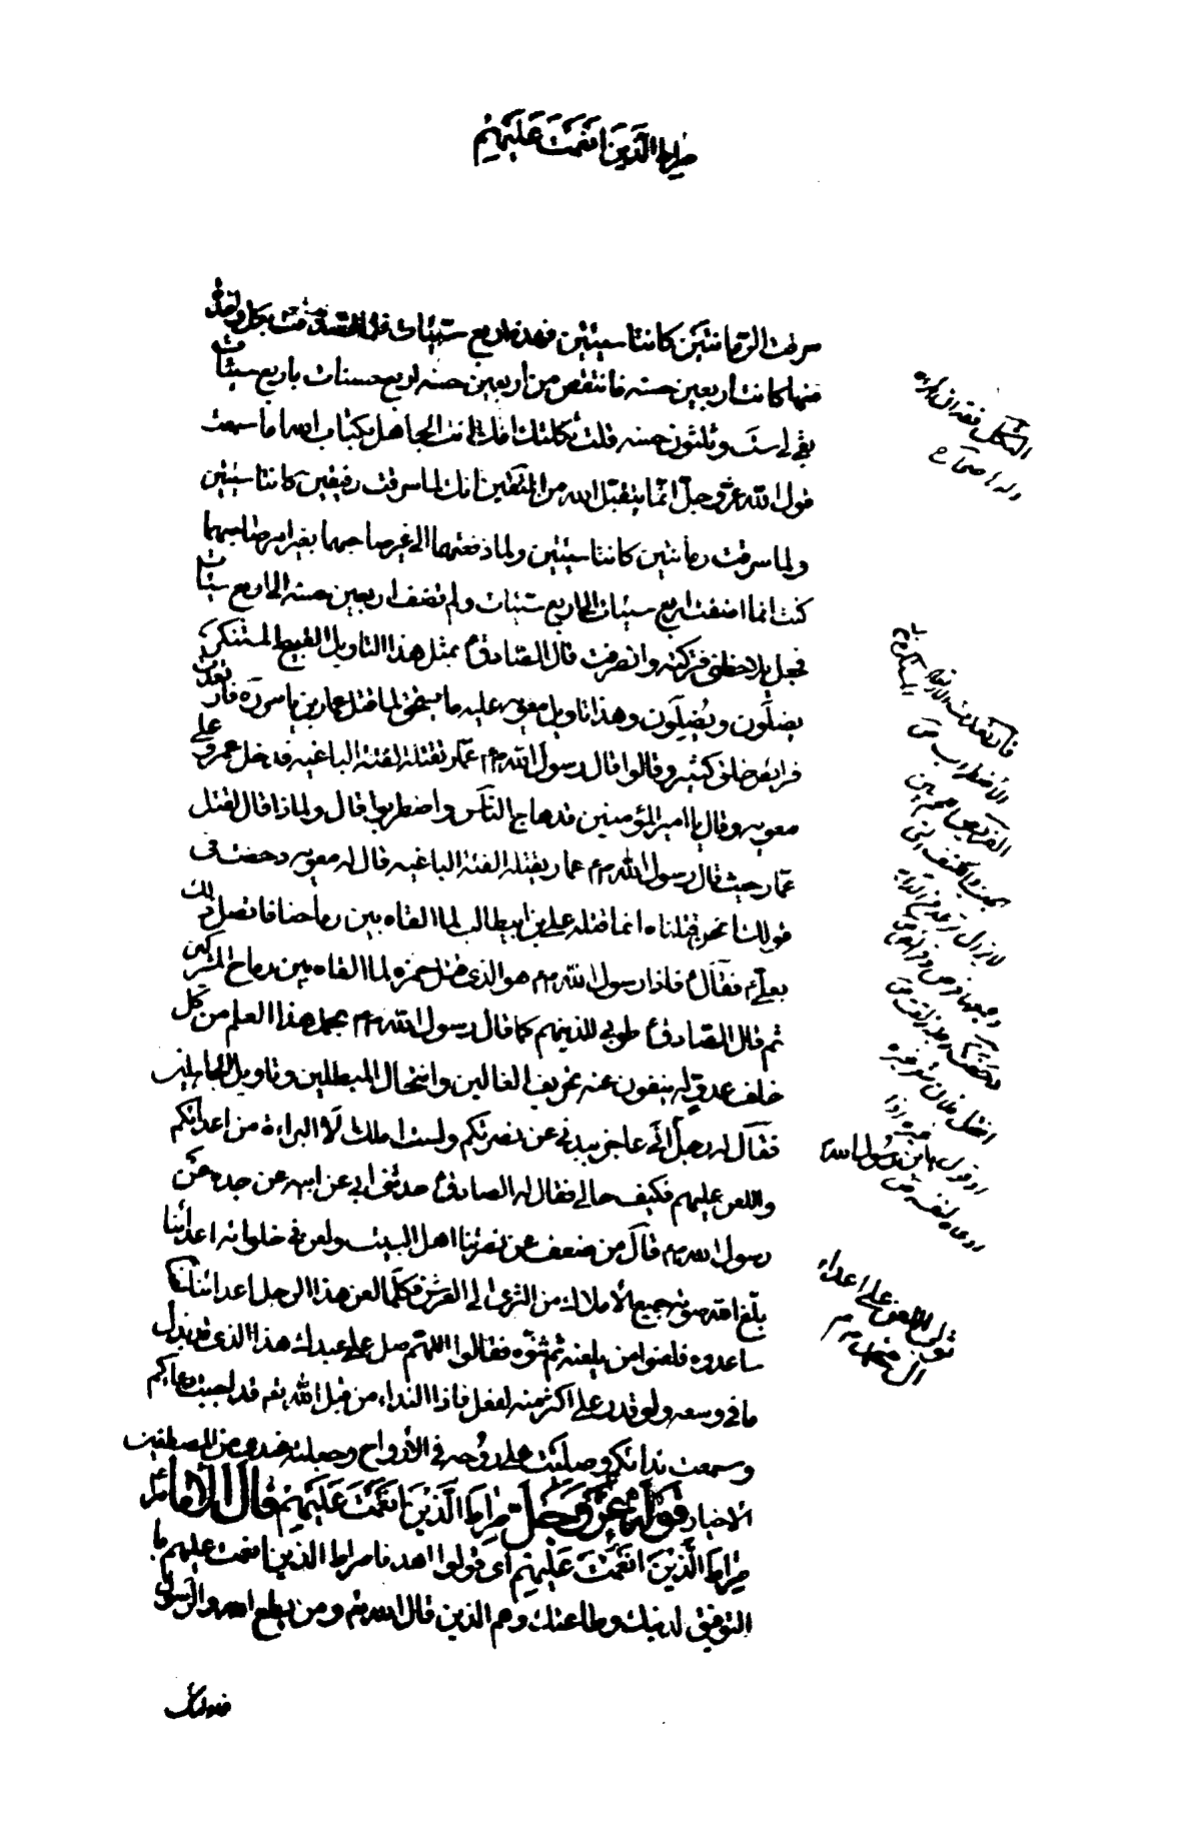 صراط الذين انعمت عليهم
سرقت الرمانتين كانتا سيئتين فهذه اربع سيئات فلما تصدقت بكل واحدة
منها كانت اربعين حسنه فانتقص من اربعين حسنه اربع حسنات باربع سيئات
بقى لى ست وثلثون حسنه قلت ثكلتك امك انت الجاهل بكتاب الله اما سمعت
قول الله عز وجل انما يتقبل الله من المتقين انك لما سرقت رغيفين كانتا سيئتين
ولما سرقت رمانتين كانتا سيئتين ولما دفعتهما الى غير صاحبهما بغير امر صاحبهما
كنت انما اضفت اربع سيئات الى اربع سيئات ولم تضف اربعين حسنه الى اربع سيئات
فجعل يلاحظنى فتركته وانصرفت قال الصادق ع بمثل هذا التاويل القبيح المستنكر
يضلون ويُضِلّون وهذا تاويل معويه عليه ما يستحق لما قتل عمار بن ياسر ره فارتعدت
فرايص خلق كثير وقالوا قال رسول الله ص م عمار تقتله الفئة الباغيه فدخل عمرو على
معويه وقال يا امير المؤمنين قد هاج الناس واضطربوا قال ولماذا قال لقتل
عمار حيث قال رسول الله ص م عمار يقتله الفئة الباغيه قال له معويه دحضت فى
قولك انحن قتلناه انما قتله على بن ابيطالب لما القاه بين رماحنا فاتصل ذلك
بعلى ع فقال ع فاذا رسول الله ص م هو الذى قتل حمزه لما القاه بين رماح المشركين
ثم قال الصادق ع طوبى للذين هم كما قال رسول الله ص م يحمل هذا العلم من كل
خلف عدوله ينفون عنه تحريف الغالين وانتحال المبطلين وتاويل الجاهلين
فقال له رجل انى عاجز ببدنى عن نصرتكم ولست املك الا البراءة من اعدائكم
واللعن عليهم فكيف حالى فقال له الصادق ع حدثنى ابى عن ابيه عن جده عن
رسول الله ص م قال من ضعف عن نصرتنا اهل البيت ولعن فى خلواته اعدائنا
بلغ الله صوته جميع الاملاك من الثرى الى العرش فكلما لعن هذا الرجل اعدائنا لعنا
ساعدوه فلعنوا من يلعنه ثم ثنوه فقالوا اللهم صل على عبدك هذا الذى قد بذل
ما فى وسعه ولو قدر على اكثر منه لفعل فاذا النداء من قبل الله تعم قد اجبت دعاءكم
وسمعت نداءكم وصليت على روحه فى الارواح وجعلته عندى من المصطفين
الاخيار قوله عز وجل صراط الذين انعمت عليهم قال الامام ع
صراط الذين انعمت عليهم اى قولوا اهدنا صراط الذين انعمت عليهم با
التوفيق لدينك وطاعتك وهم الذين قال الله تعم ومن يطع الله والرسول
فاولئك
الثكل فقد المراة
ولدها صحاح
الاضطراب ص
يابن رسول الله
ثواب اللعن على اعداء
ال محمد ص م